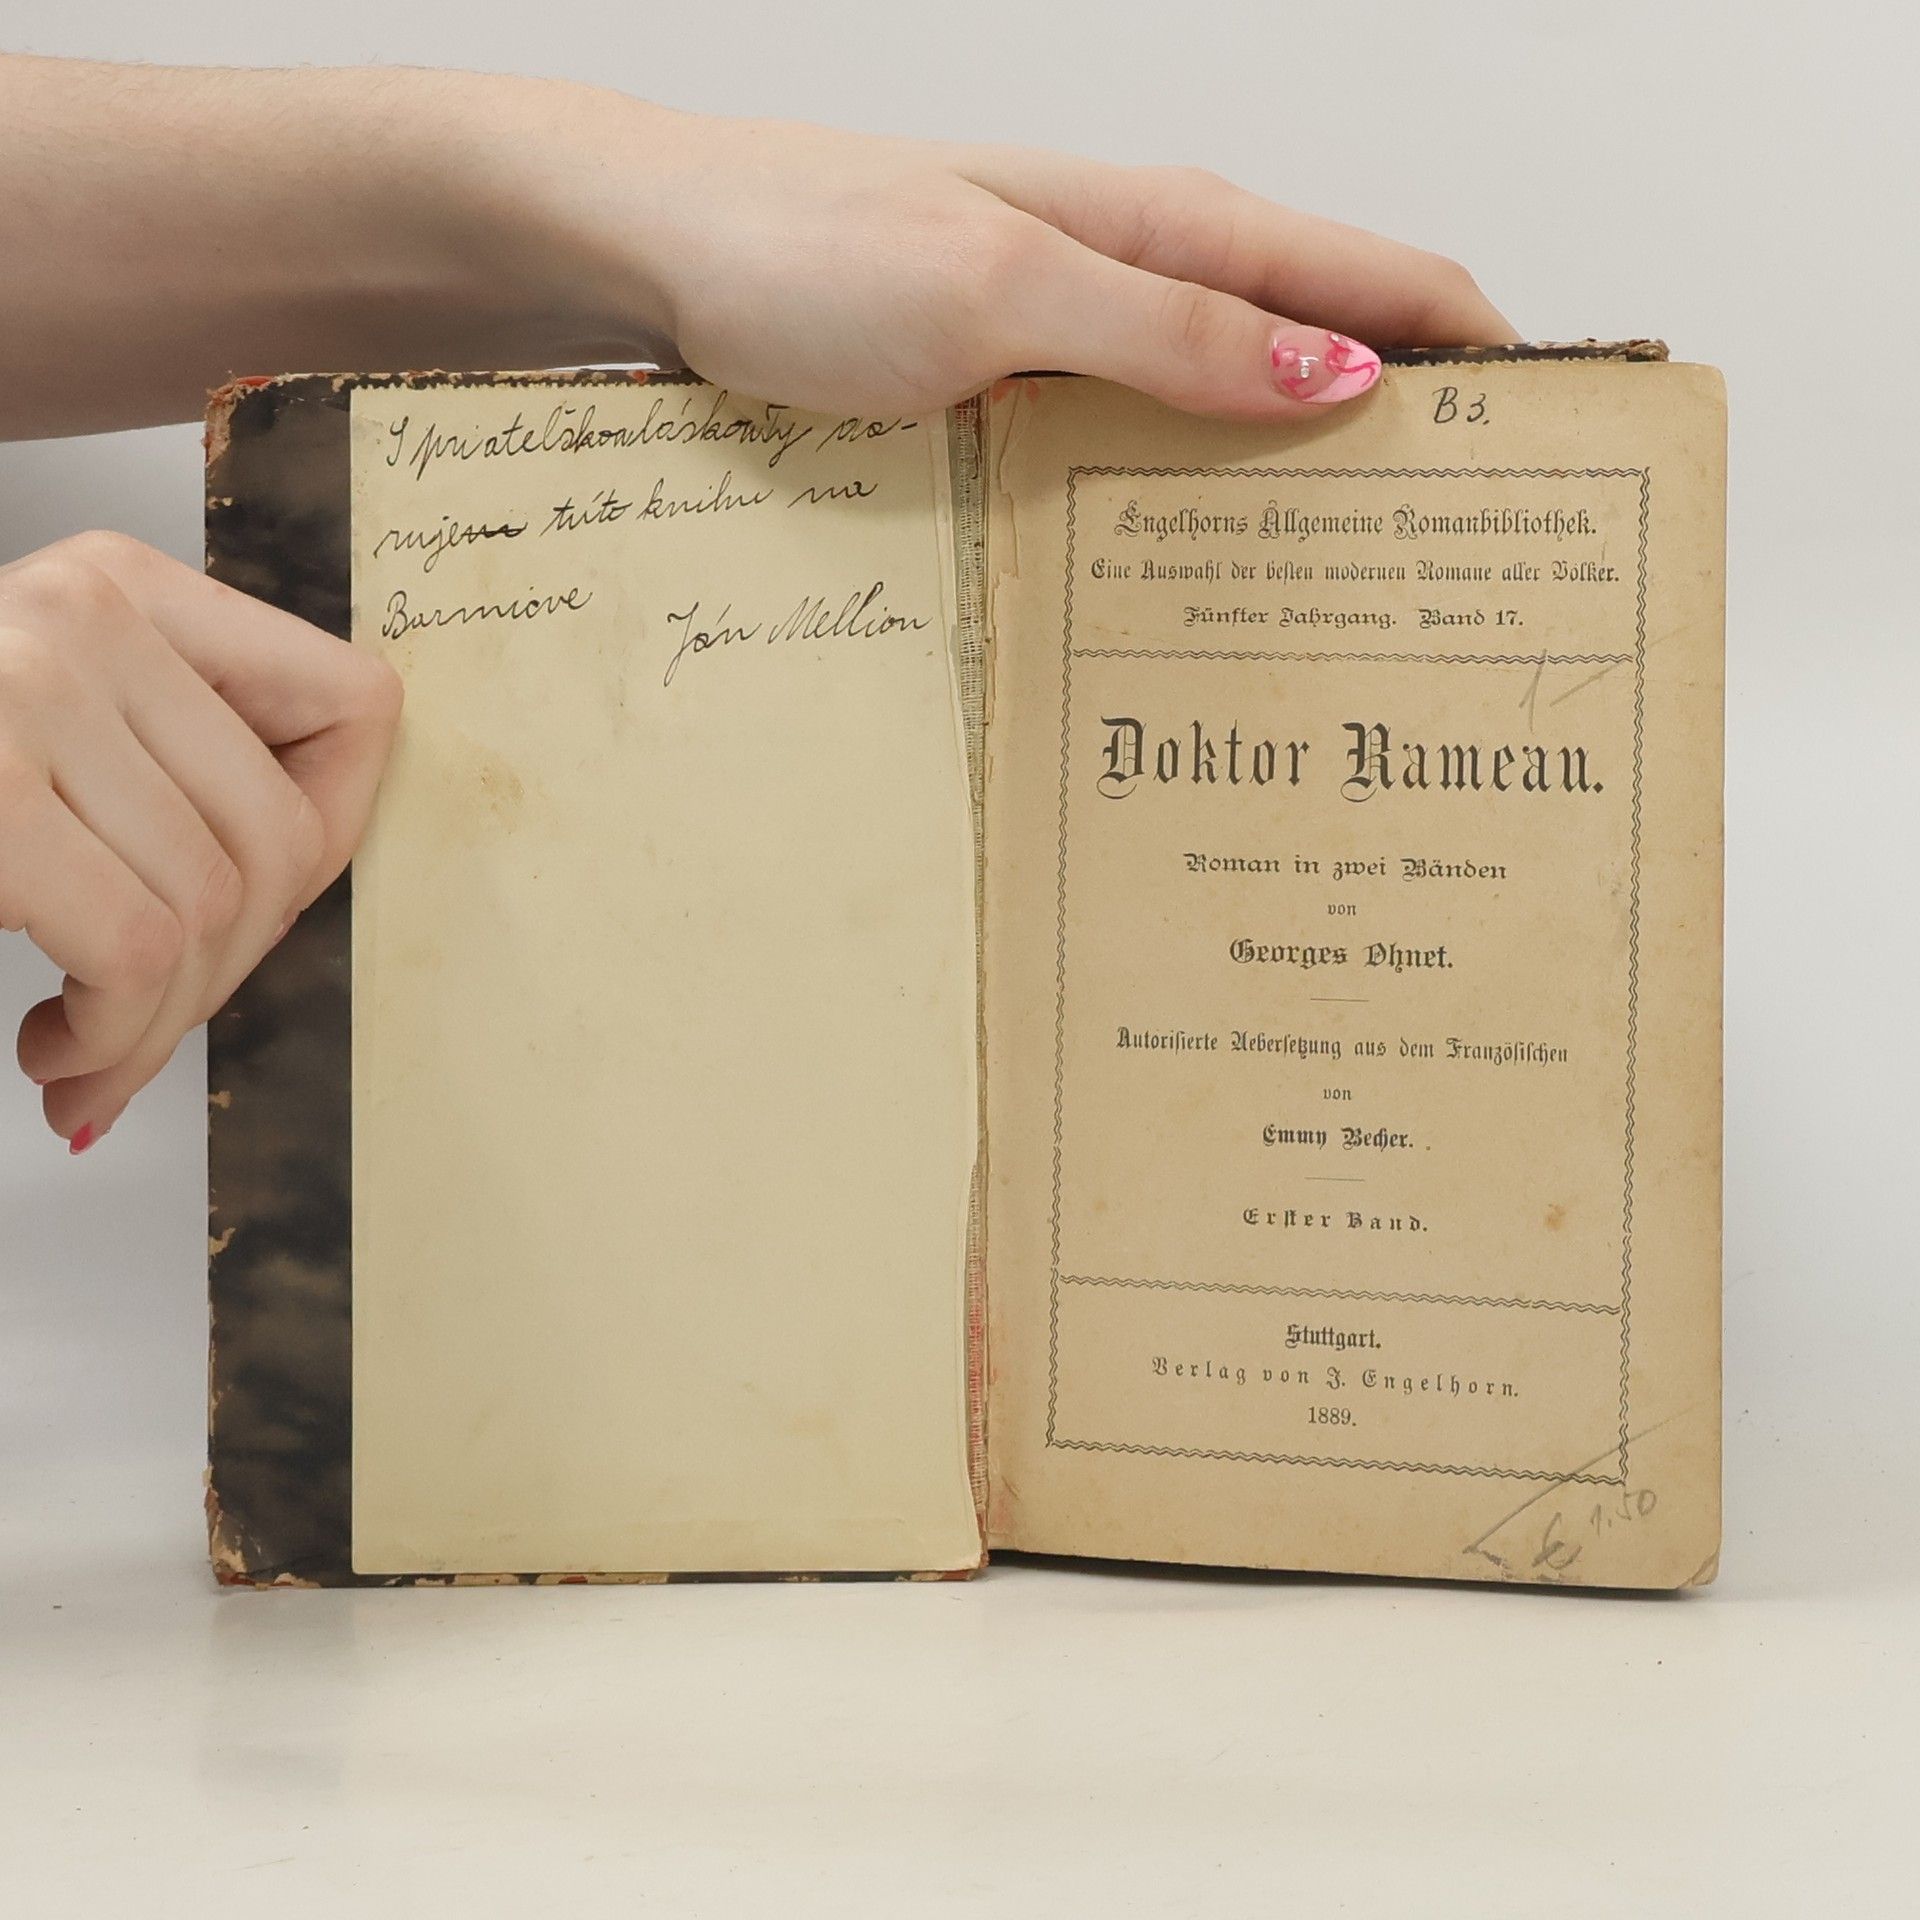 S priateľskou láskou Ty da-
rujem túto knihu na
Ján Mellion
B 3.
Engelhorns Allgemeine Romanbibliothek.
Eine Auswahl der besten modernen Romane aller Völker.
Fünfter Jahrgang. Band 17.
1 —
Doktor Rameau.
Roman in zwei Bänden
von
Georges Ohnet.
Autorisierte Uebersetzung aus dem Französischen
von
Emmy Becher.
Erster Band.
Stuttgart.
Verlag von J. Engelhorn.
1889.
1.50